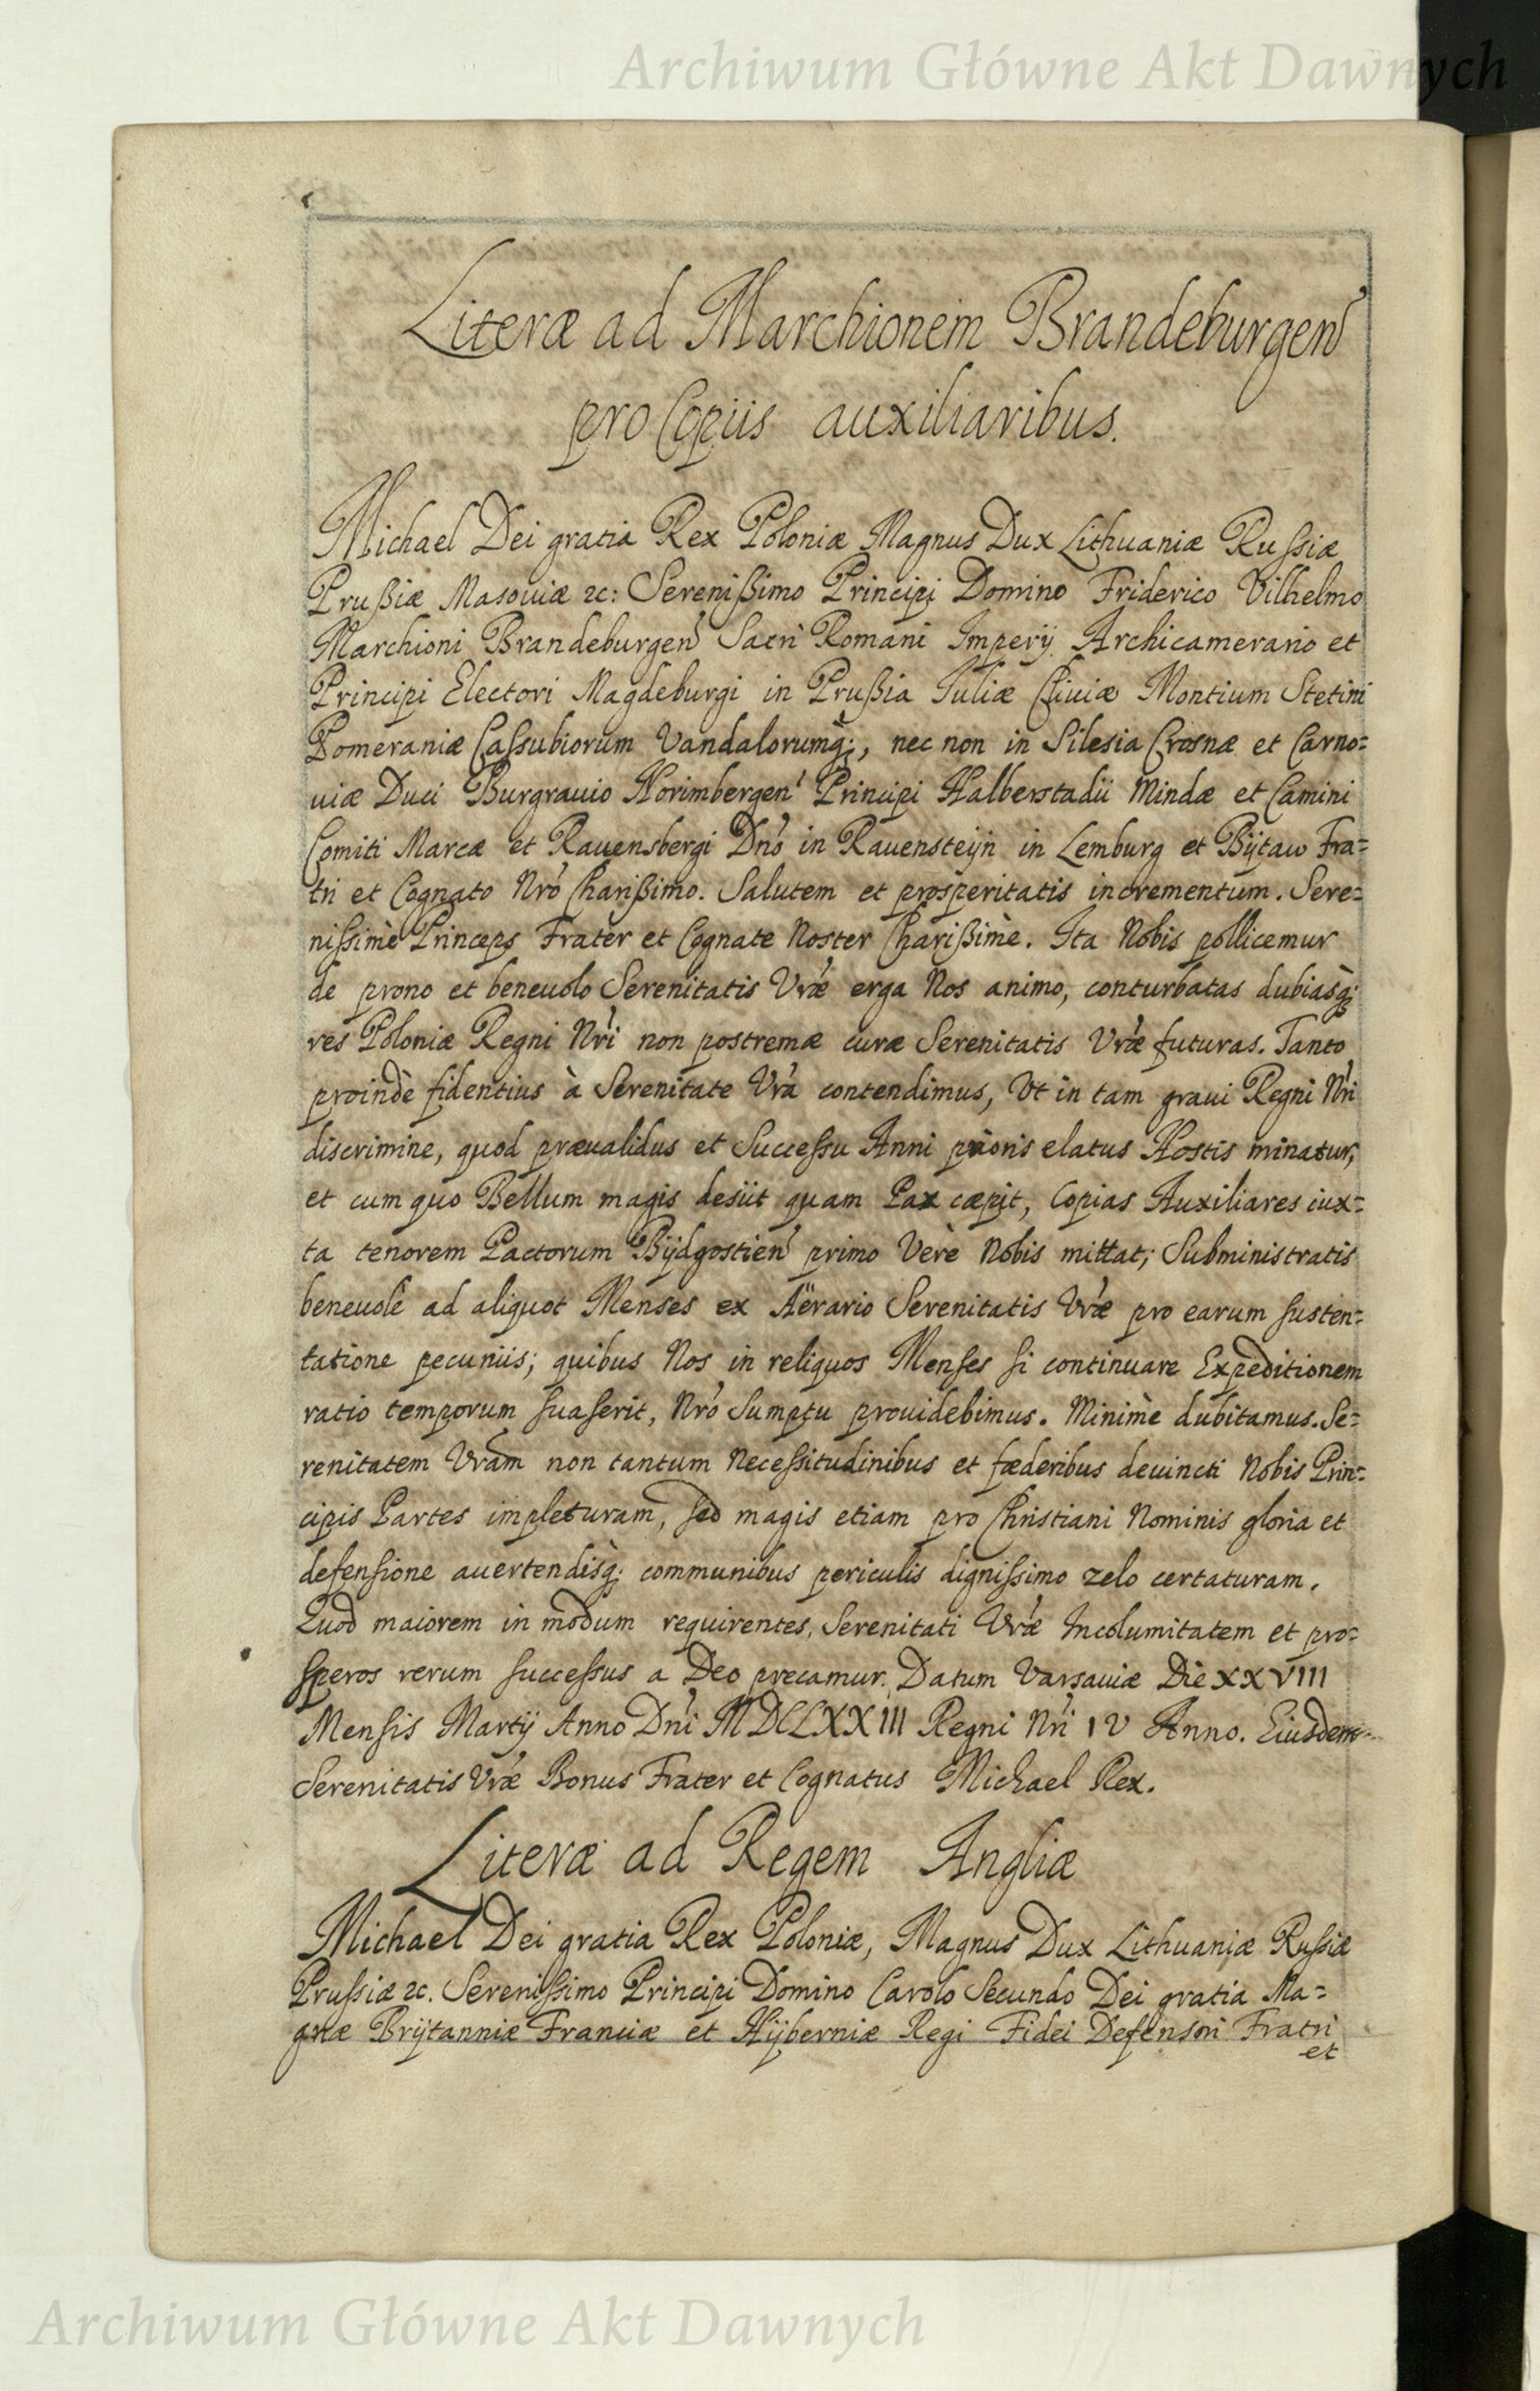 Archiwum Główne Akt Dawnych
Literæ ad Marchionem Brandeburgen̕
pro Copiis auxiliaribus.
Michael Dei gratia Rex Poloniæ Magnus Dux Lithuaniæ Russiæ
Prußiæ Masouiæ ꝛc: Serenißimo Principi Domino Friderico Vilhelmo
Marchioni Brandeburgen̕ Sacri Romani Imperÿ Archicamerario et
Principi Electori Magdeburgi in Prußia Iuliæ Cliuiæ Montium Stetini
Pomeraniæ Cassubiorum Vandalorumq̀;, nec non in Silesia Crosnæ et Carno=
uiæ Duci Burgrauio Norimbergen̕ Principi Halberstadii Mindæ et Camini
Comiti Marcæ et Rauensbergi Dn̕o in Rauensteÿn in Lemburg et Bÿtaw Fra=
tri et Cognato Nr̕o Charißimo. Salutem et prosperitatis incrementum. Sere=
nissimè Princeps Frater et Cognate Noster Charißimè. Ita Nobis pollicemur
de prono et beneuolo Serenitatis Vr̕æ erga Nos animo, conturbatas dubiasq̀;
res Poloniæ Regni Nr̕i non postremæ curæ Serenitatis Vr̕æ futuras. Tanto
proindè fidentius à Serenitate Vr̕a contendimus, Vt in tam graui Regni Nr̕i
discrimine, quod præualidus et Successu Anni prioris elatus Hostis minatur,
et cum quo Bellum magis desiit quam Pax cæpit, Copias Auxiliares iux=
ta tenorem Pactorum Bÿdgostien̕ primo Verè Nobis mittat; Subministratis
beneuolè ad aliquot Menses ex Aërario Serenitatis Vr̕æ pro earum susten=
tatione pecuniis; quibus Nos in reliquos Menses si continuare Expeditionem
ratio temporum suaserit, Nr̕o Sumptu prouidebimus. Minimè dubitamus. Se=
renitatem Vr̕am non tantum Necessitudinibus et fæderibus deuincti Nobis Prin=
cipis Partes impleturam, sed magis etiam pro Christiani Nominis gloria et
defensione auertendisq̀; communibus periculis dignissimo zelo certaturam.
Quod maiorem in modum requirentes, Serenitati Vr̕æ Incolumitatem et pro=
speros rerum successus a Deo precamur. Datum Varsauiæ Die XXVIII
Mensis Martÿ Anno Dn̕i MDCLXXIII Regni Nr̕i IV Anno. Eiusdem
Serenitatis Vr̕æ Bonus Frater et Cognatus Michael Rex.
Literæ ad Regem Angliæ
Michael Dei gratia Rex Poloniæ, Magnus Dux Lithuaniæ Russiæ
Prussiæ ꝛc. Serenissimo Principi Domino Carolo Secundo Dei gratia Ma=
gnæ Brÿtanniæ Franciæ et Hÿberniæ Regi Fidei Defensori Fratri
et
Archiwum Główne Akt Dawnych